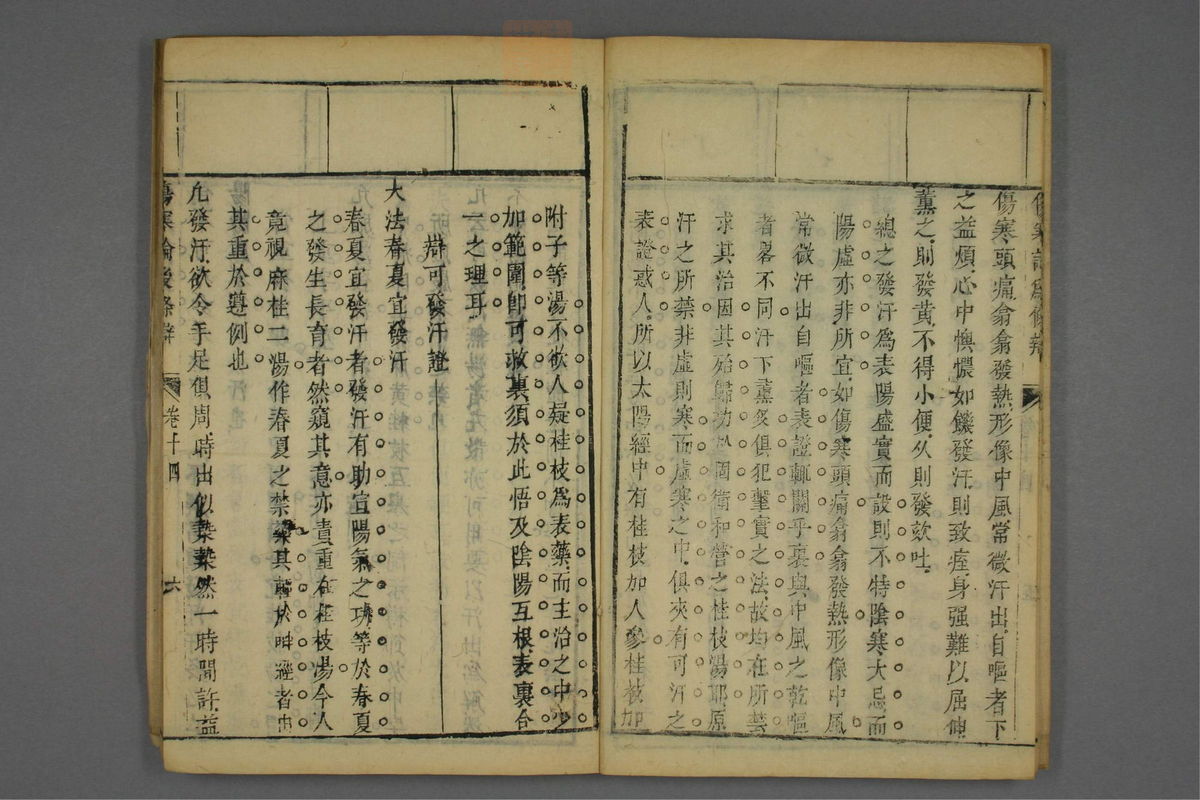 傷寒頭痛翕翕發熱形像中風常微汗出自嘔者下
之益煩心中懊憹如饑發汗則致痓身强難以屈伸
薰之則發黃不得小便灸則發欬吐
總之發汗爲表陽盛實而設則不特陰寒大忌而
陽虛亦非所宜如傷寒頭痛翕翕發熱形像中風
常微汗出自嘔者表證輒關乎裏與中風之乾嘔
者畧不同汗下薰灸俱犯鑿實之法故均在所禁
求其治因其殆歸功於固衛和營之桂枝湯耶原
汗之所禁非虛則寒而虛寒之中俱夾有可汗之
表證惑人所以太陽經中有桂枝加人參桂枝加
附子等湯不欲人疑桂枝爲表藥而主治之中必
加範圍卽可救裏須於此悟及陰陽互根表裏合
一之理耳
辯可發汗證
大法春夏宜發汗
春夏宜發汗者發汗有助宣陽氣之功等於春夏
之發生長育者然窺其意亦責重在桂枝湯今人
竟視麻桂二湯作春夏之禁藥其輕於 者由
其重於遵例也
凡發汗欲令手足俱周時出似漐漐然一時間許益
傷寒論後條辯
卷十四
六